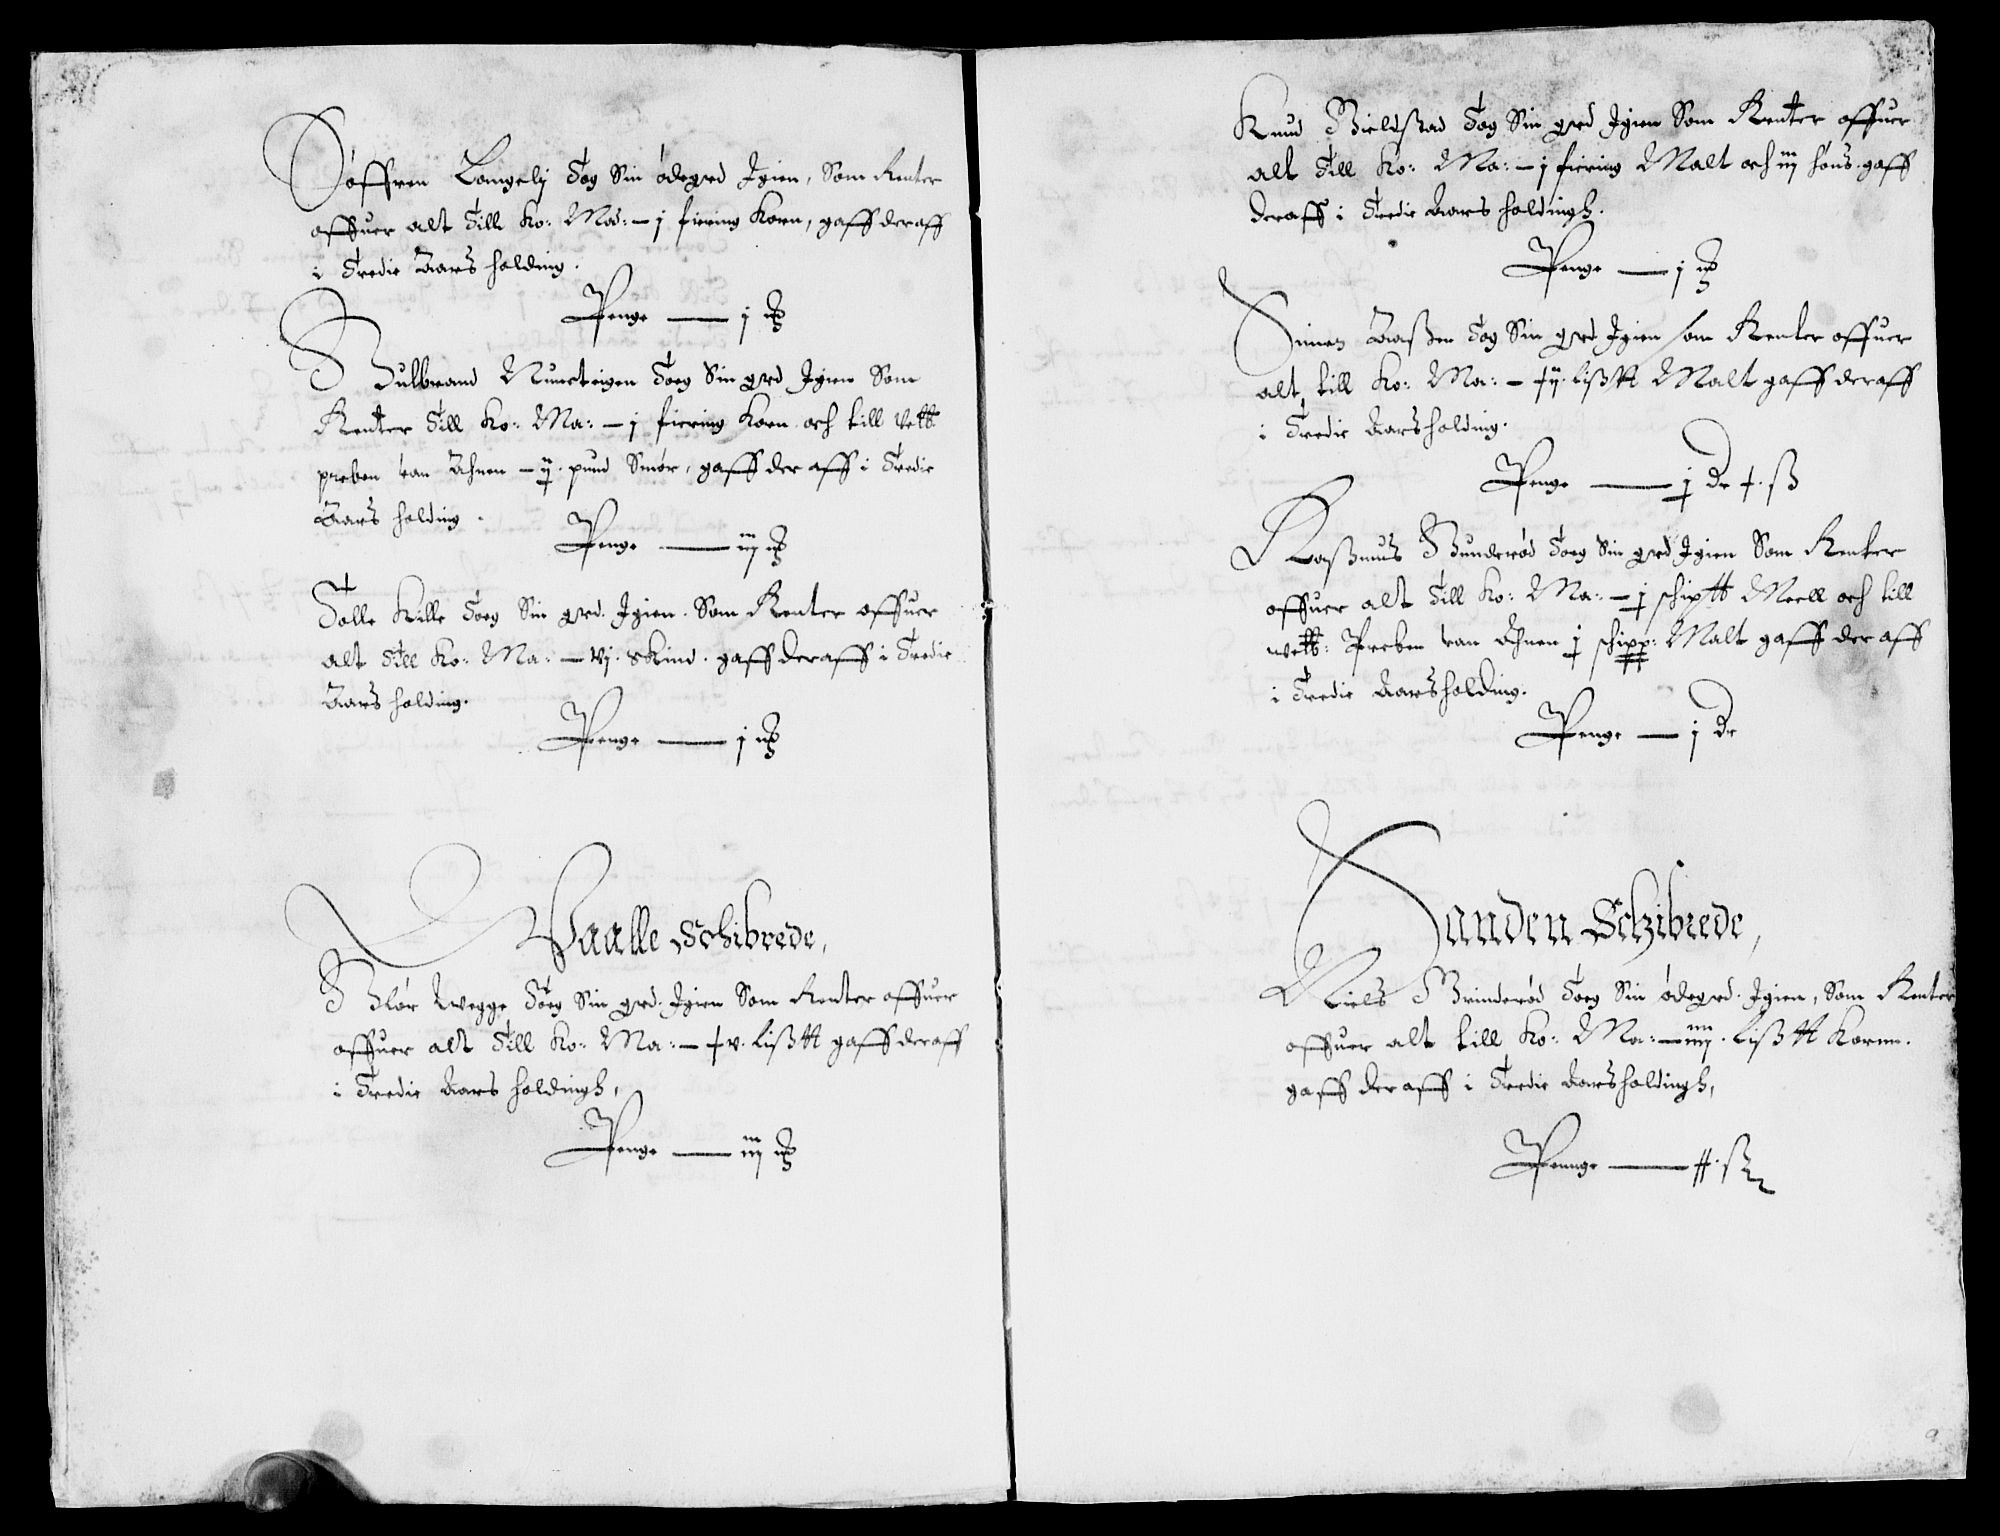 Søffren Langelj Tog Sin ødegrd Jgien, Som Renter
offuer alt Till Ko: Mad: — j fiering Korn, gaff deraff
i Tredie Aars holding.
Penge — j
Gulbrand Nuersteigen Toeg Sin grd Jgien Som
Renter Till Ko: Ma: — j fiering Korn och till Velb:
preben van Ahnen — ij pund Smør, gaff der aff i Tredie
Aars holding.
Penge — iij
Tolle Kille Toeg Sin grd. Jgien. Som Renter offuer
alt Till Ko: Ma: — vj. skind. gaff deraff i Tredie
Aars holding.
Penge — j
Vaalle Schibrede,
Wegge Toeg Sin grd. Jgien Som Renter offuer
offuer alt Till Ko: Ma: — v. Liß gaff deraff
i Tredie Aars holdingh,
Penge — iij
Knud Bieldstad Tog Sin grd Jgien Som Renter offuer
alt Till Ko: Ma: — j fiering Malt och iij høns. gaff
deraff i Tredie Aars holdingh.
Penge — j
Simen Aaßen Tog Sin grd Jgien som Renter offuer
alt, till Ko: Ma: — ij. Liß Malt gaff deraff
i Tredie Aarsholding.
Penge — j Dr ß
Raßmus Gunderød Toeg Sin grd Jgien Som Renter
offuer alt Till Ko: Ma: — j schip Meell och till
welb: Preben van Ahnen j schipp: Malt gaff der aff
i Tredie Aarsholding.
Penge — j Dr
Sanden Schibrede,
Niels Grinderød Toeg Sin ødegrd. Jgien, Som Renter
offuer alt till Ko: Ma: — iiij. Liß Kornn.
gaff der aff i Tredie Aarsholdingh,
Pennge — ß